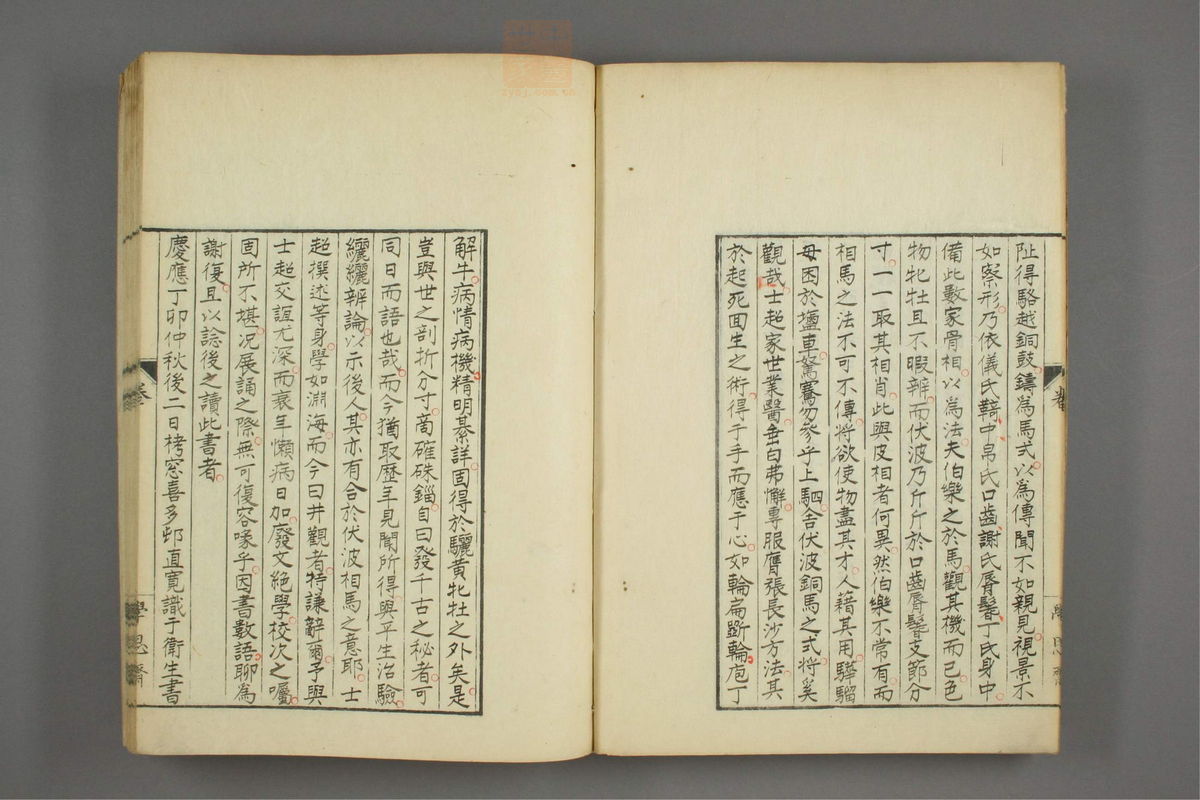 阯得駱越銅鼓鑄為馬式以為傳聞不如親見視景不
如察形乃依儀氏䩭中帛氏口齒謝氏脣鬐丁氏身中
備此數家骨相以為法夫伯樂之於馬觀其機而已色
物牝牡且不暇辨而伏波乃斤斤於口齒脣鬐支節分
寸一一取其相肖此與皮相者何異然伯樂不常有而
相馬之法不可不傳將欲使物盡其才人藉其用驊騮
毋困於鹽車駑騫勿參乎上駟舍伏波銅馬之式將奚
觀哉士超家世業醫垂白弗懈專服膺張長沙方法其
於起死回生之術得于手而應于心如輪扁斲輪庖丁
解牛病情病機精明綦詳固得於驪黃牝牡之外矣是
豈與世之剖析分寸商確硃錙自曰發千古之秘者可
同日而語也哉而今猶取歷年見聞所得與平生治驗
纚纚辨論以示後人其亦有合於伏波相馬之意耶士
超撰述等身學如淵海而今曰井觀者特謙辭爾予與
士超交誼尤深而衰年懶病日加廢文絕學校次之囑
固所不堪況展誦之際無可復容喙乎因書數語聊為
謝復且以諗後之讀此書者
慶應丁卯仲秋後二日栲窓喜多邨直寬識于衛生書
卷
學思齋
zysj.com.cn